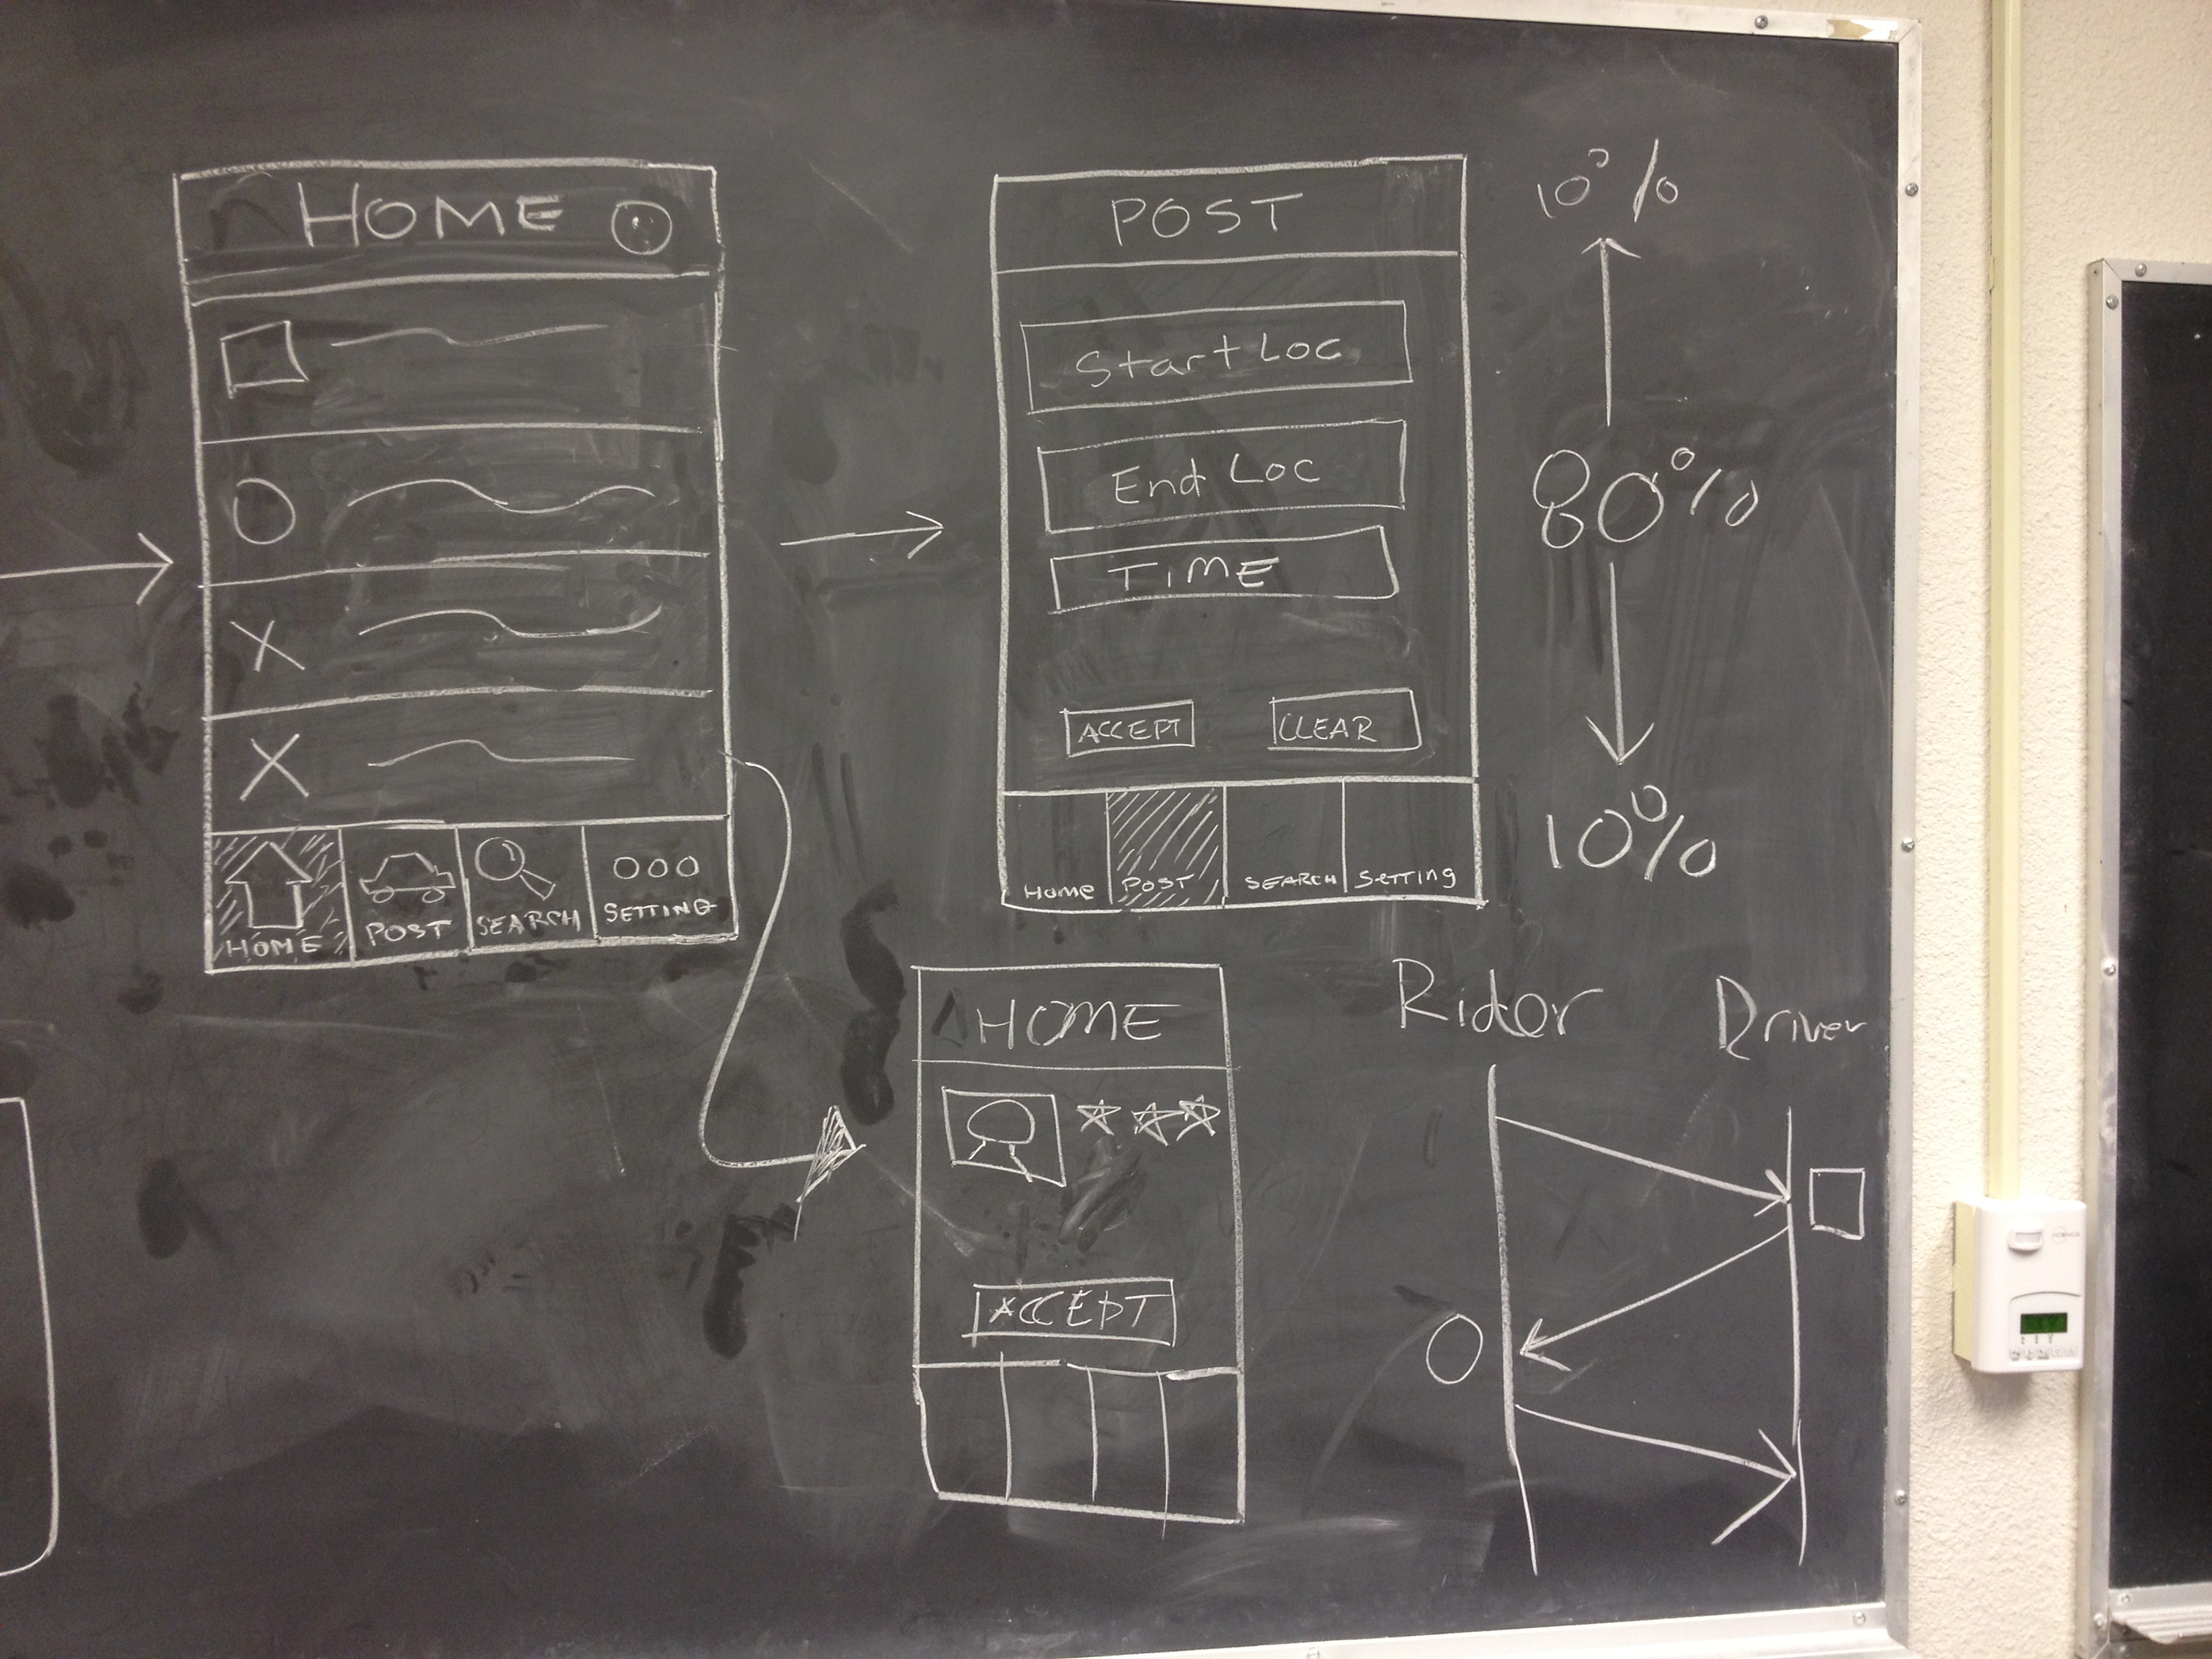 HOME
HOME
POST
SEARCH
SETTING
POST
Start Loc
End Loc
TIME
ACCEPT
CLEAR
Home
POST
SEARCH
SETTING
10%
80%
10%
HOME
ACCEPT
Rider
Driver